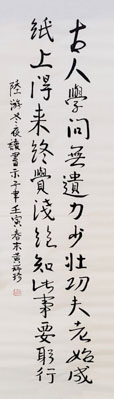 古人學問無遺力少壯功夫老始成
紙上得来終覺淺絕知此事要躬行
陸游冬夜讀書示子聿壬寅春木黃